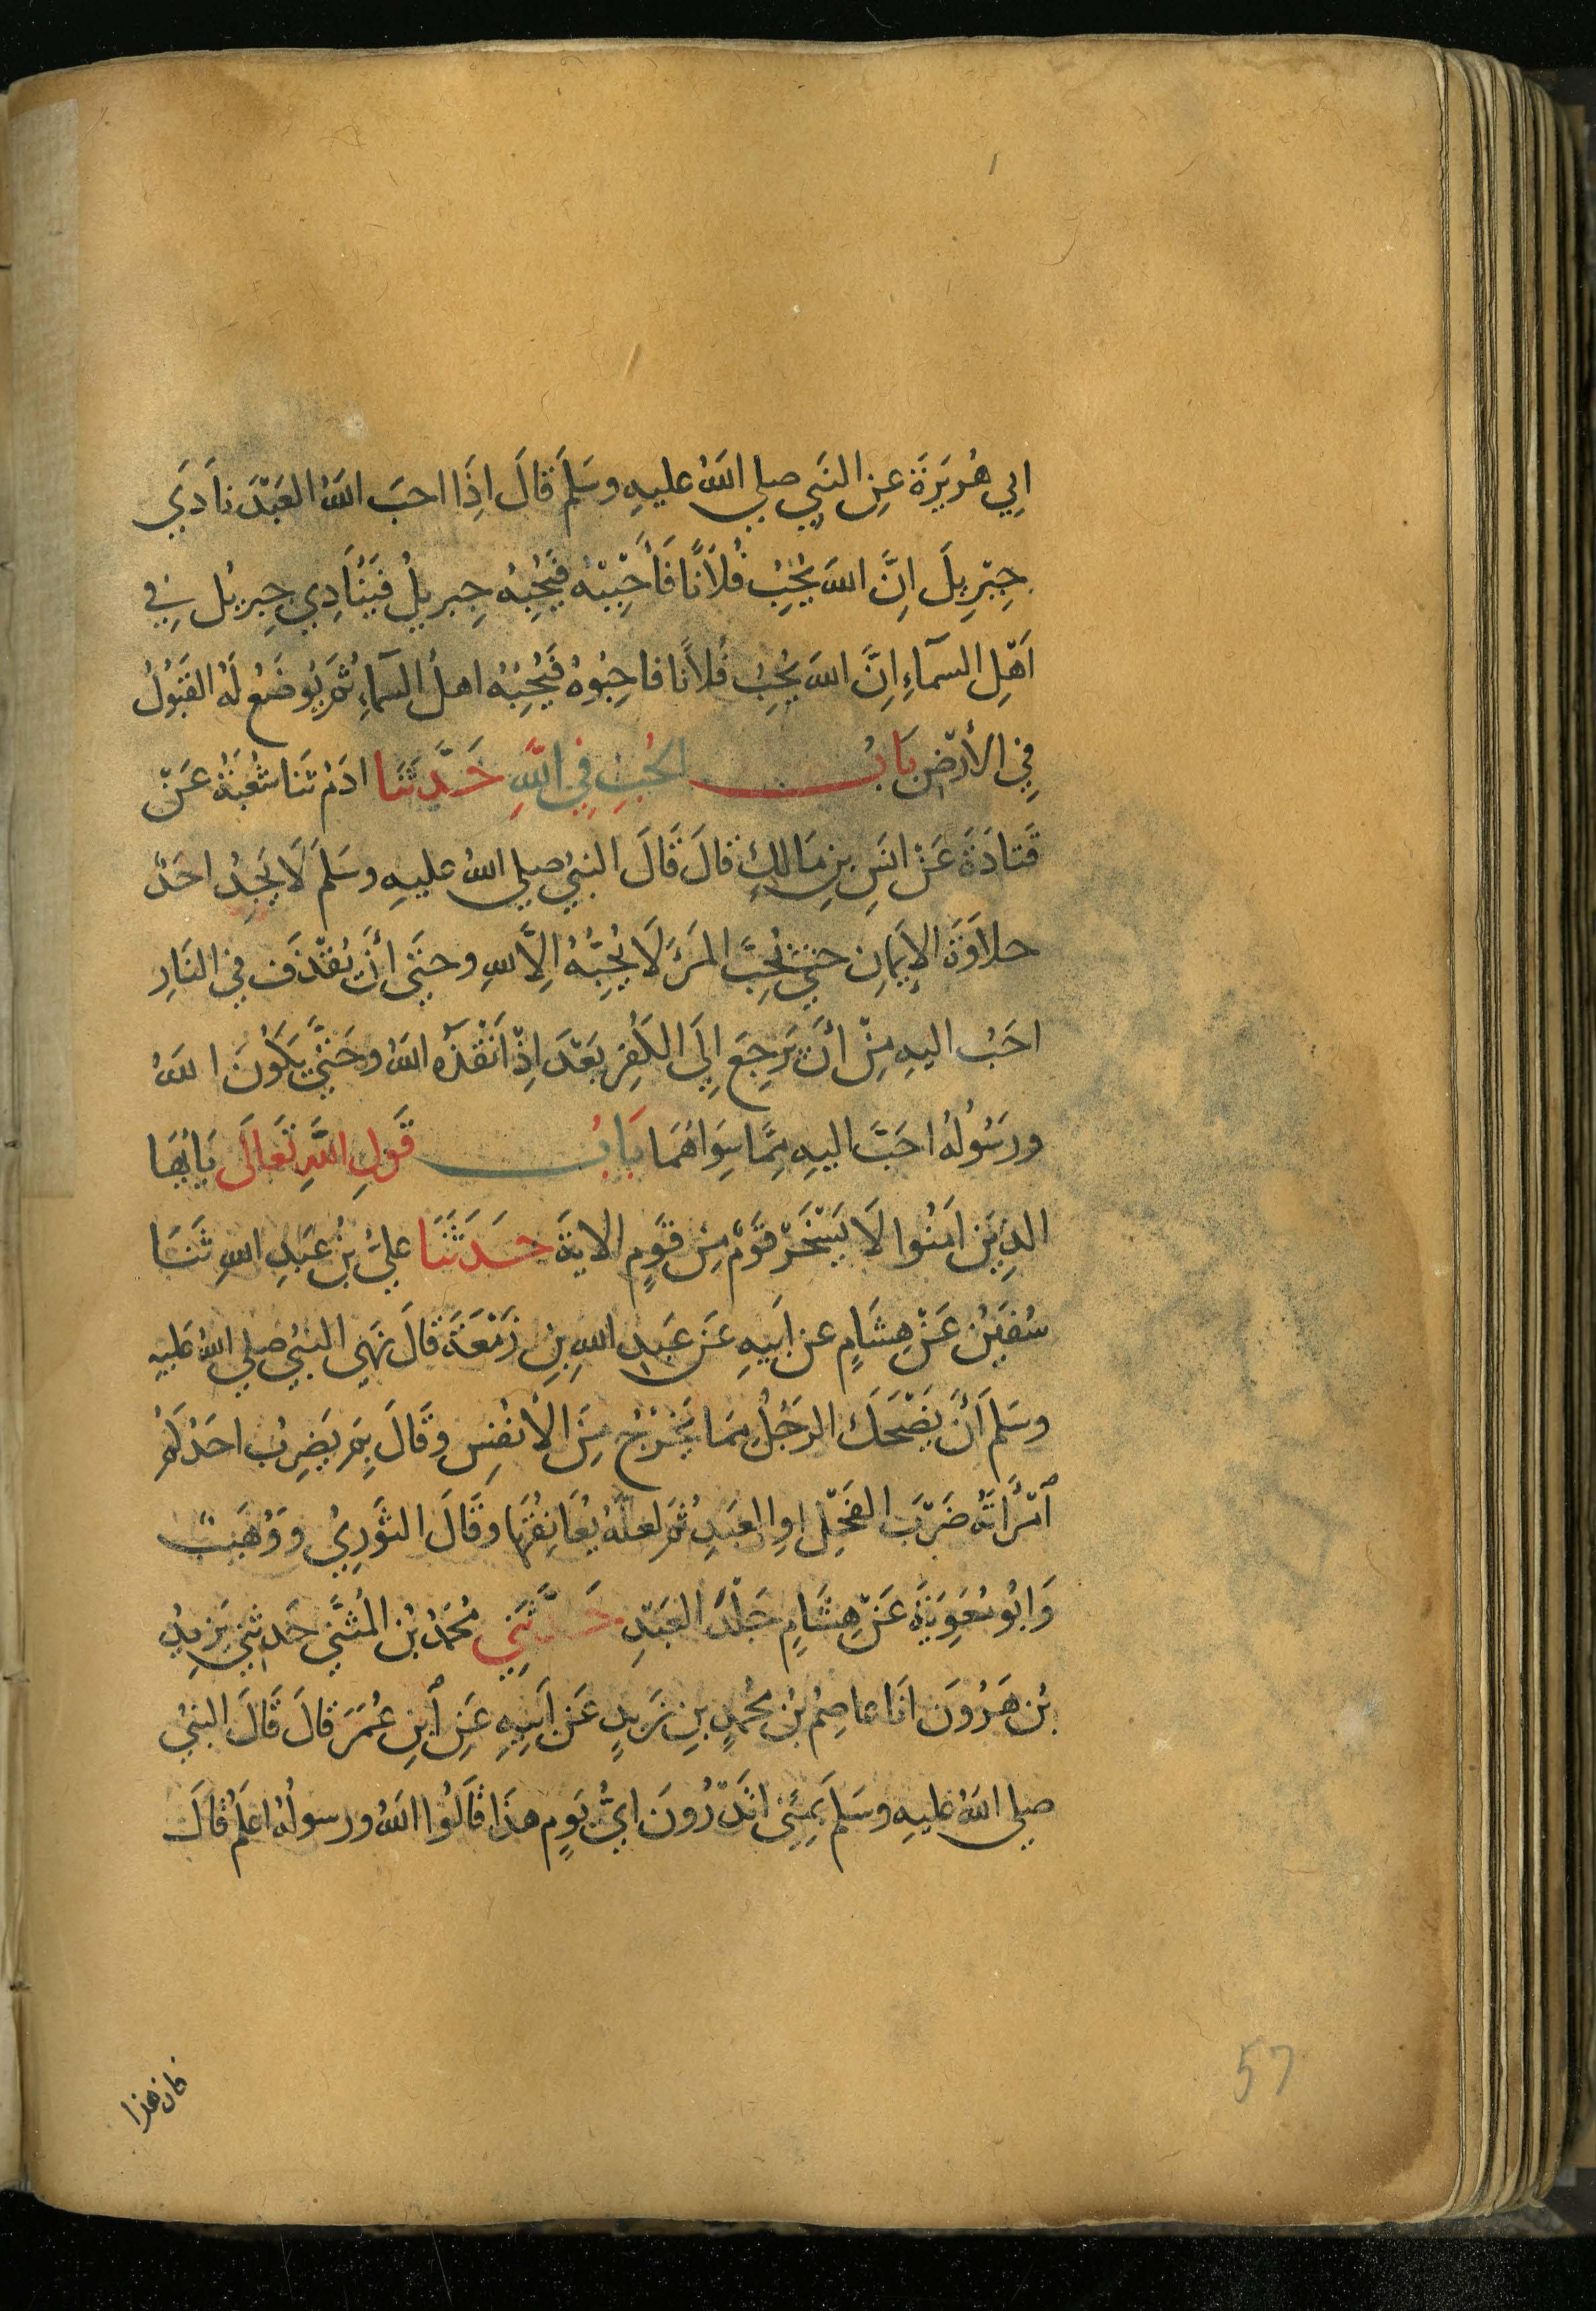 اَبِي هُرَيرَةَ عَنِ النَبيِ صلي اللهُ عليهِ وسَلمَ قَالَ اِذَا احبَ اللهُ العَبْدَ نَادَي
جِبْرِيلَ اِنَّ اللهَ يُحِبُ فُلَانًا فَأَحْبِبْهُ فَيُحِبُهُ جِبريلُ فَيُنَادِي جِبريلُ فِي
اَهْلِ السمآءِ اِنَّ اللهَ يُحِبُ فُلَانًا فاحِبُوهُ فَيُحِبُهُ اهلُ السمآءِ ثُمَ يُوضَعُ لَهُ القَبُولُ
فِي الأرْضِ بَابُ الحُبِ فِي اللَّهِ حَدَّثَنَا ادَمُ ثَنا شُعْبَةُ عَنْ
قَتادَةَ عَنْ انَسِ بنِ مَالِكٍ قالَ قَالَ النبيُ صلي اللهُ عليهِ وسَلمَ لَا يَجِدُ احَدٌ
حلاَوَةَ الإيمانِ حتي يُحِبَّ المَرْءَ لَا يُحِبُّهُ اِلاَّ للهِ وحتَي أنْ يُقْذَفَ في النَارِ
احَبُ اليهِ مِنْ أنْ يَرجِعَ اِلَي الكُفرِ بَعْدَ اِذْ اَنْقَذَهُ اللهُ وحَتَّي يَكُونَ اللهُ
ورَسُولُهُ احَبَّ اليهِ مِمَّا سِوَاهُمَا بَابُ قَولِ اللَّهِ تَعَالَي يَايُهَا
الذِينَ امَنُوا لَا يَسْخَرْ قَوْمٌ مِن قَومٍ الايةَ حَدَثَنَا عليُّ بنُ عَبَدِ اللهِ ثَنَا
سُفيَنُ عَنْ هِشَامٍ عن اَبيهِ عَن عَبدِ اللهِ بنِ زَمْعَةَ قَالَ نَهَى النبيُ صلي اللهُ عَليهِ
وسَلمَ اَنْ يَضْحَكَ الرجُلُ مِمَا يَخْرُجُ مِنَ الأنفُسِ وقَالَ بِمَ يَضرِبُ احَدُكُمُ
امْرَأَتَهُ ضَرْبَ الفَحْلِ اوِ العَبدِ ثُمَ لعلَّهُ يُعَانِقُهَا وقَالَ الثَورِيُ ووُهَيبٌ
وَابُو مُعَوِيَةَ عَنْ هِشَامٍ جَلْدَ العَبْدِ حَدَّثَنِي مُحَمدُ بْنُ المُثَنَّي حَدثَني يَزيدُ
بْنُ هَرُونَ انَا عاصِمُ بْنُ مُحَمدِ بنِ زَيدٍ عَن اَبيهِ عَنِ ابنِ عُمَرَ قالَ قَالَ النبيُ
صلي اللهُ عليهِ وسَلمَ بِمِنًى اتَدْرُونَ ايُّ يَومٍ هذَا قَالُوا اللهُ ورسولُهُ اعلَمُ قَالَ
فان هذا
57